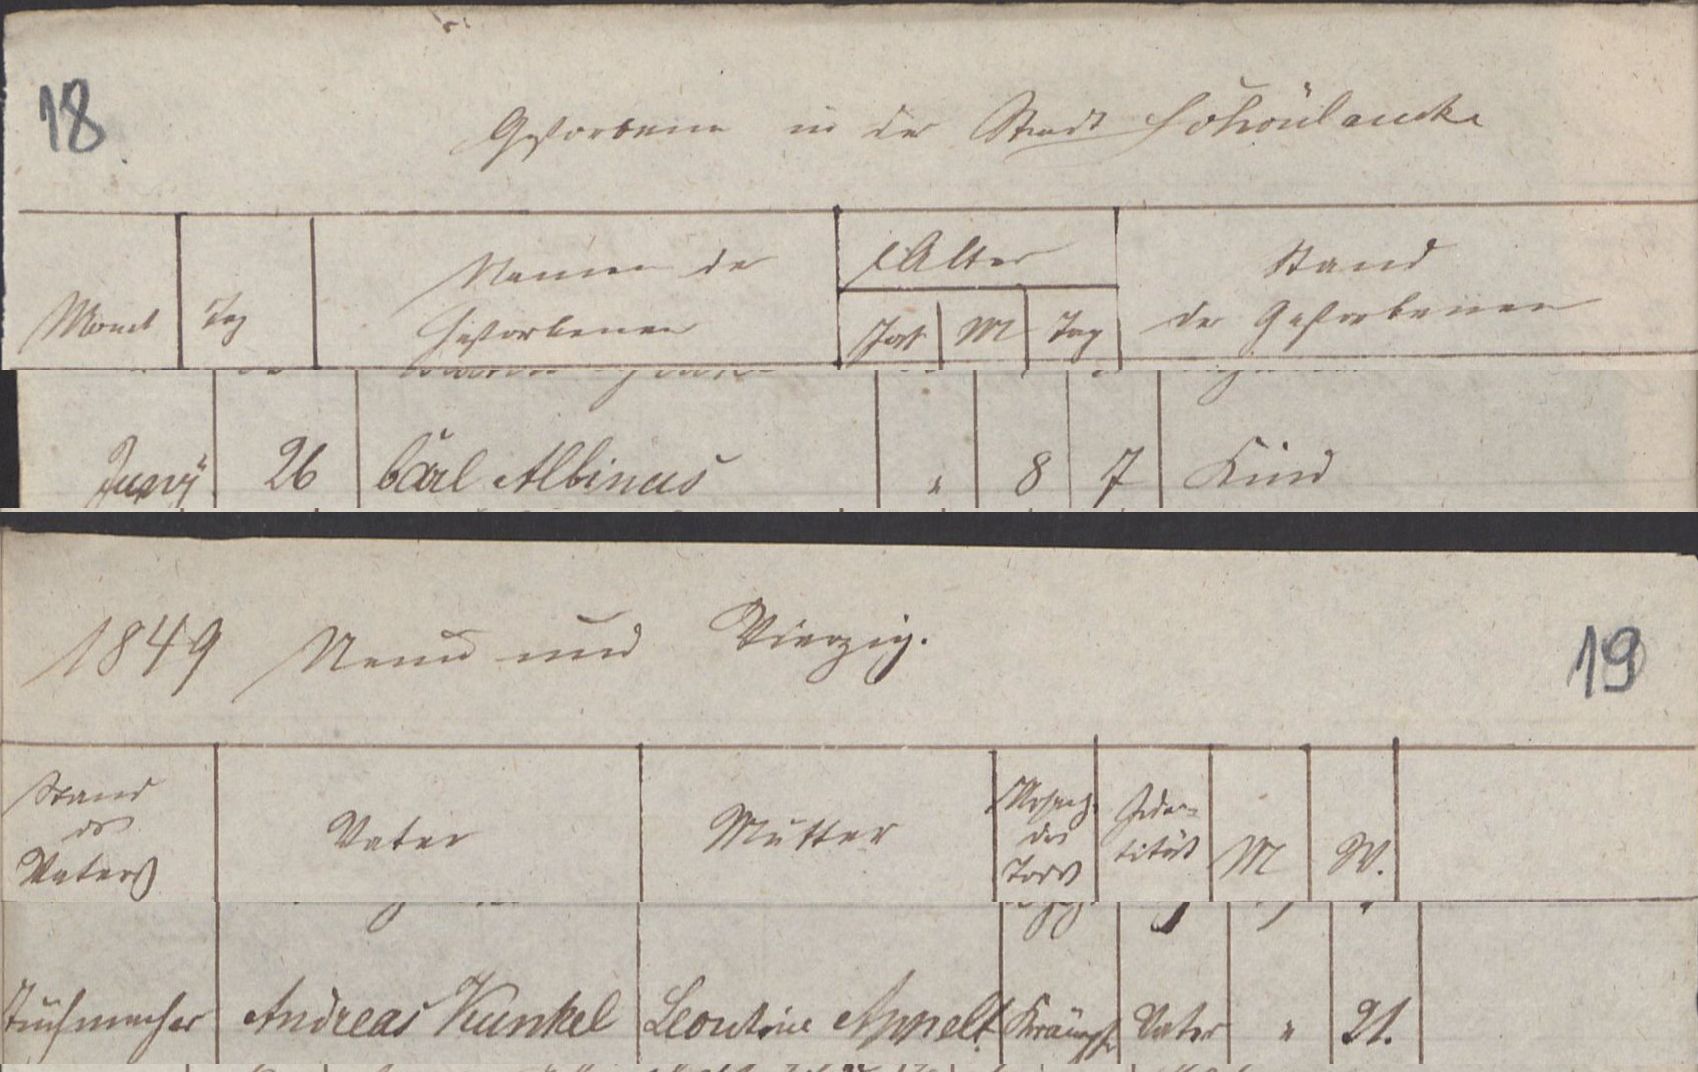 18
Gestorbene in der Stadt Schönlancke
Monat Tag Namen der Gestorbenen Alter Jah M Tag Stand der Gestorbenen
Juny 26 Carl Albinus " 8 7 Kind
1849 Neun und Vierzig. 19
Stand des Vaters Vater Mutter des Tods Iden- tität M W.
Tuchmacher Andreas Kunkel Leontine Appelt Krämpfe Vater " 21.